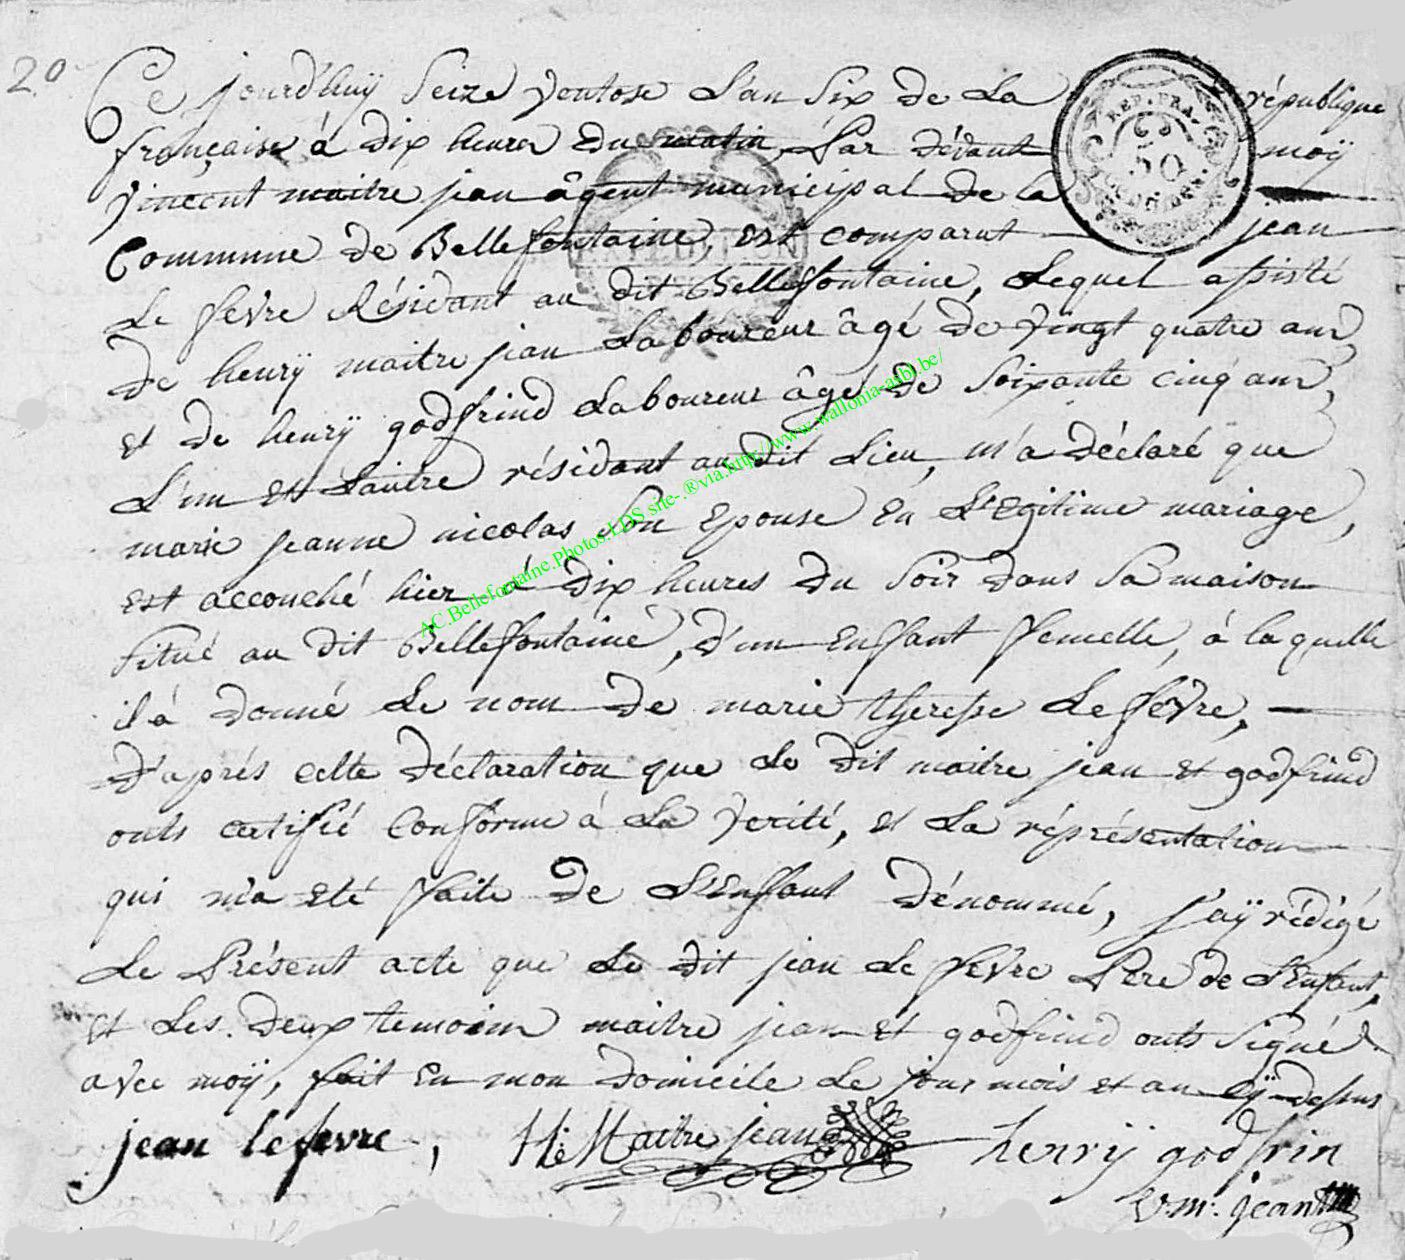 2°
Ce jourd'huÿ Seize ventose L'an Six de La république
française à Dix heures Du matin, Par Dévant moÿ
vincent maitre jean âgent municipal de la
Commune de Bellefontaine, est comparut jean
Le fevre Résidant au dit Bellefontaine, Lequel assisté
De henrÿ maitre jean Laboureur âgé De vingt quatre ans,
et De henrÿ godfrind Laboureur âgé De Soixante cinq ans,
L'un et L'autre résidant au Dit Lieu, m'a Déclaré que
marie jeanne nicolas Son Epouse En L'Egitime mariage,
est accouché hier à Dix heures Du Soir Dans Sa maison
Situé au Dit Bellefontaine, D'un Enfant femelle, à laquelle
il à Donné Le nom De marie theresse Le fevre,
D'aprés cette Déclaration que Le Dit maitre jean et godfrind
onts certifié Conforme à La verité, et La réprésentation
qui m'a eté faite De L'Enfant Dénommé, j'aÿ rédigé
Le Présent acte que Le Dit jean Le fevre Pere de L'Enfant,
et Les Deux temoins maitre jean et godfrind onts Signé
avec moÿ, fait En mon Domicile Le jour mois et an cÿ-dessus
jean lefevre, H: Maitre jean henrÿ godfrin
V. m. jean
REP. FRA.
50
AC.Bellefontaine.Photos.LDS site-.®via.http://www.wallonia-asbl.be/